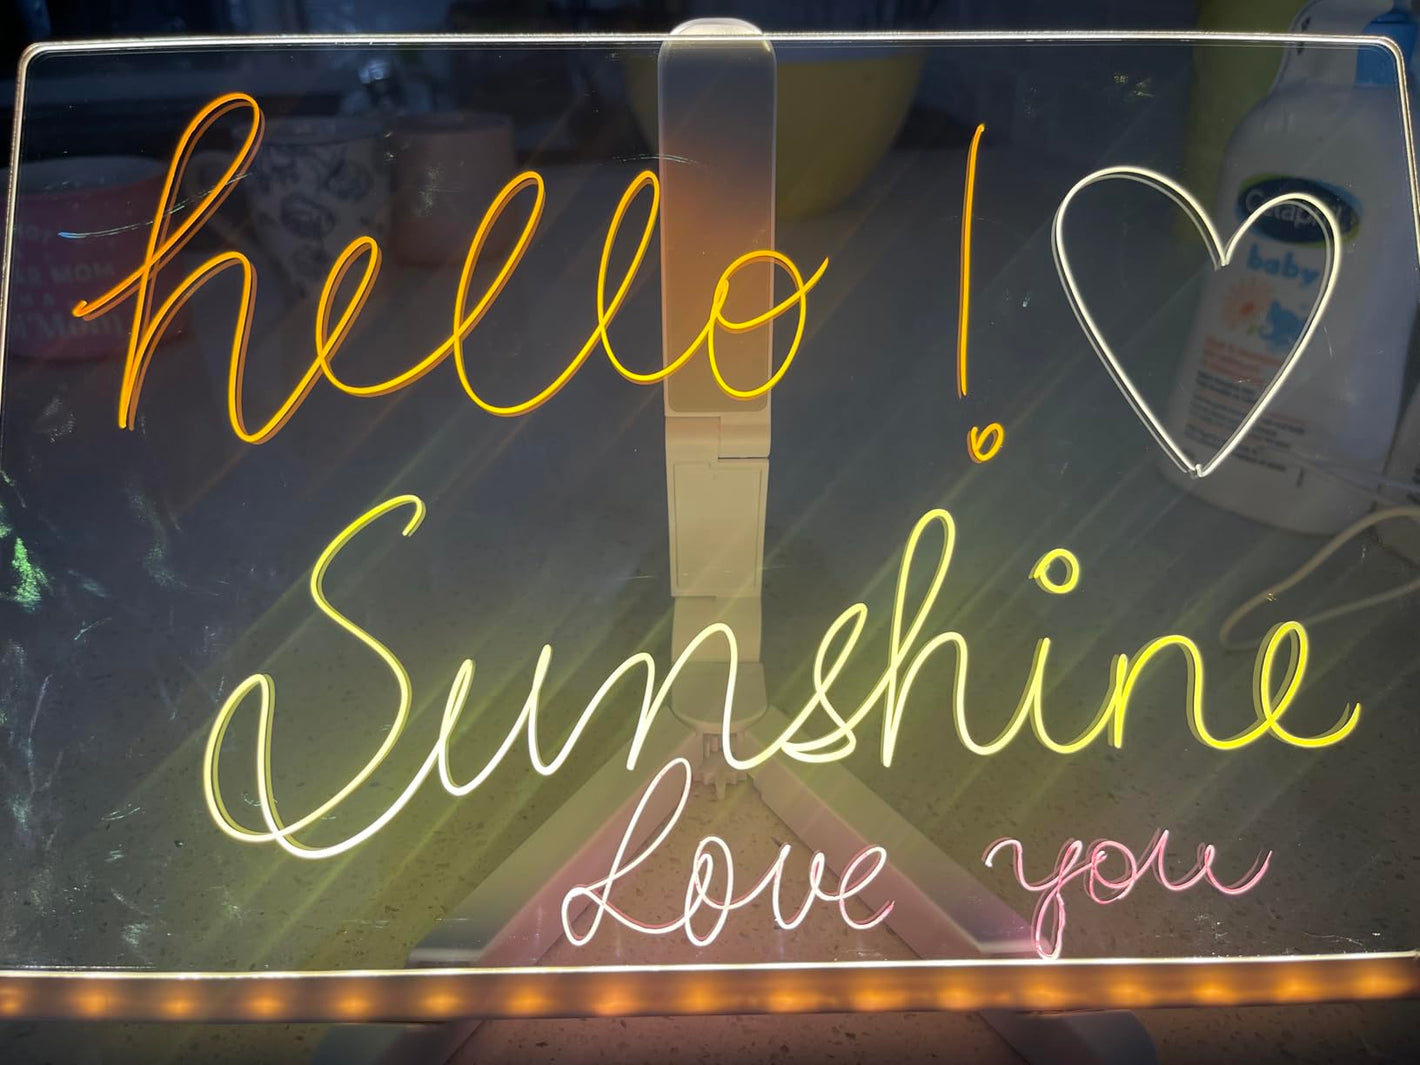 hello!
Sunshine
Love you
Cetaphil
baby
MOM